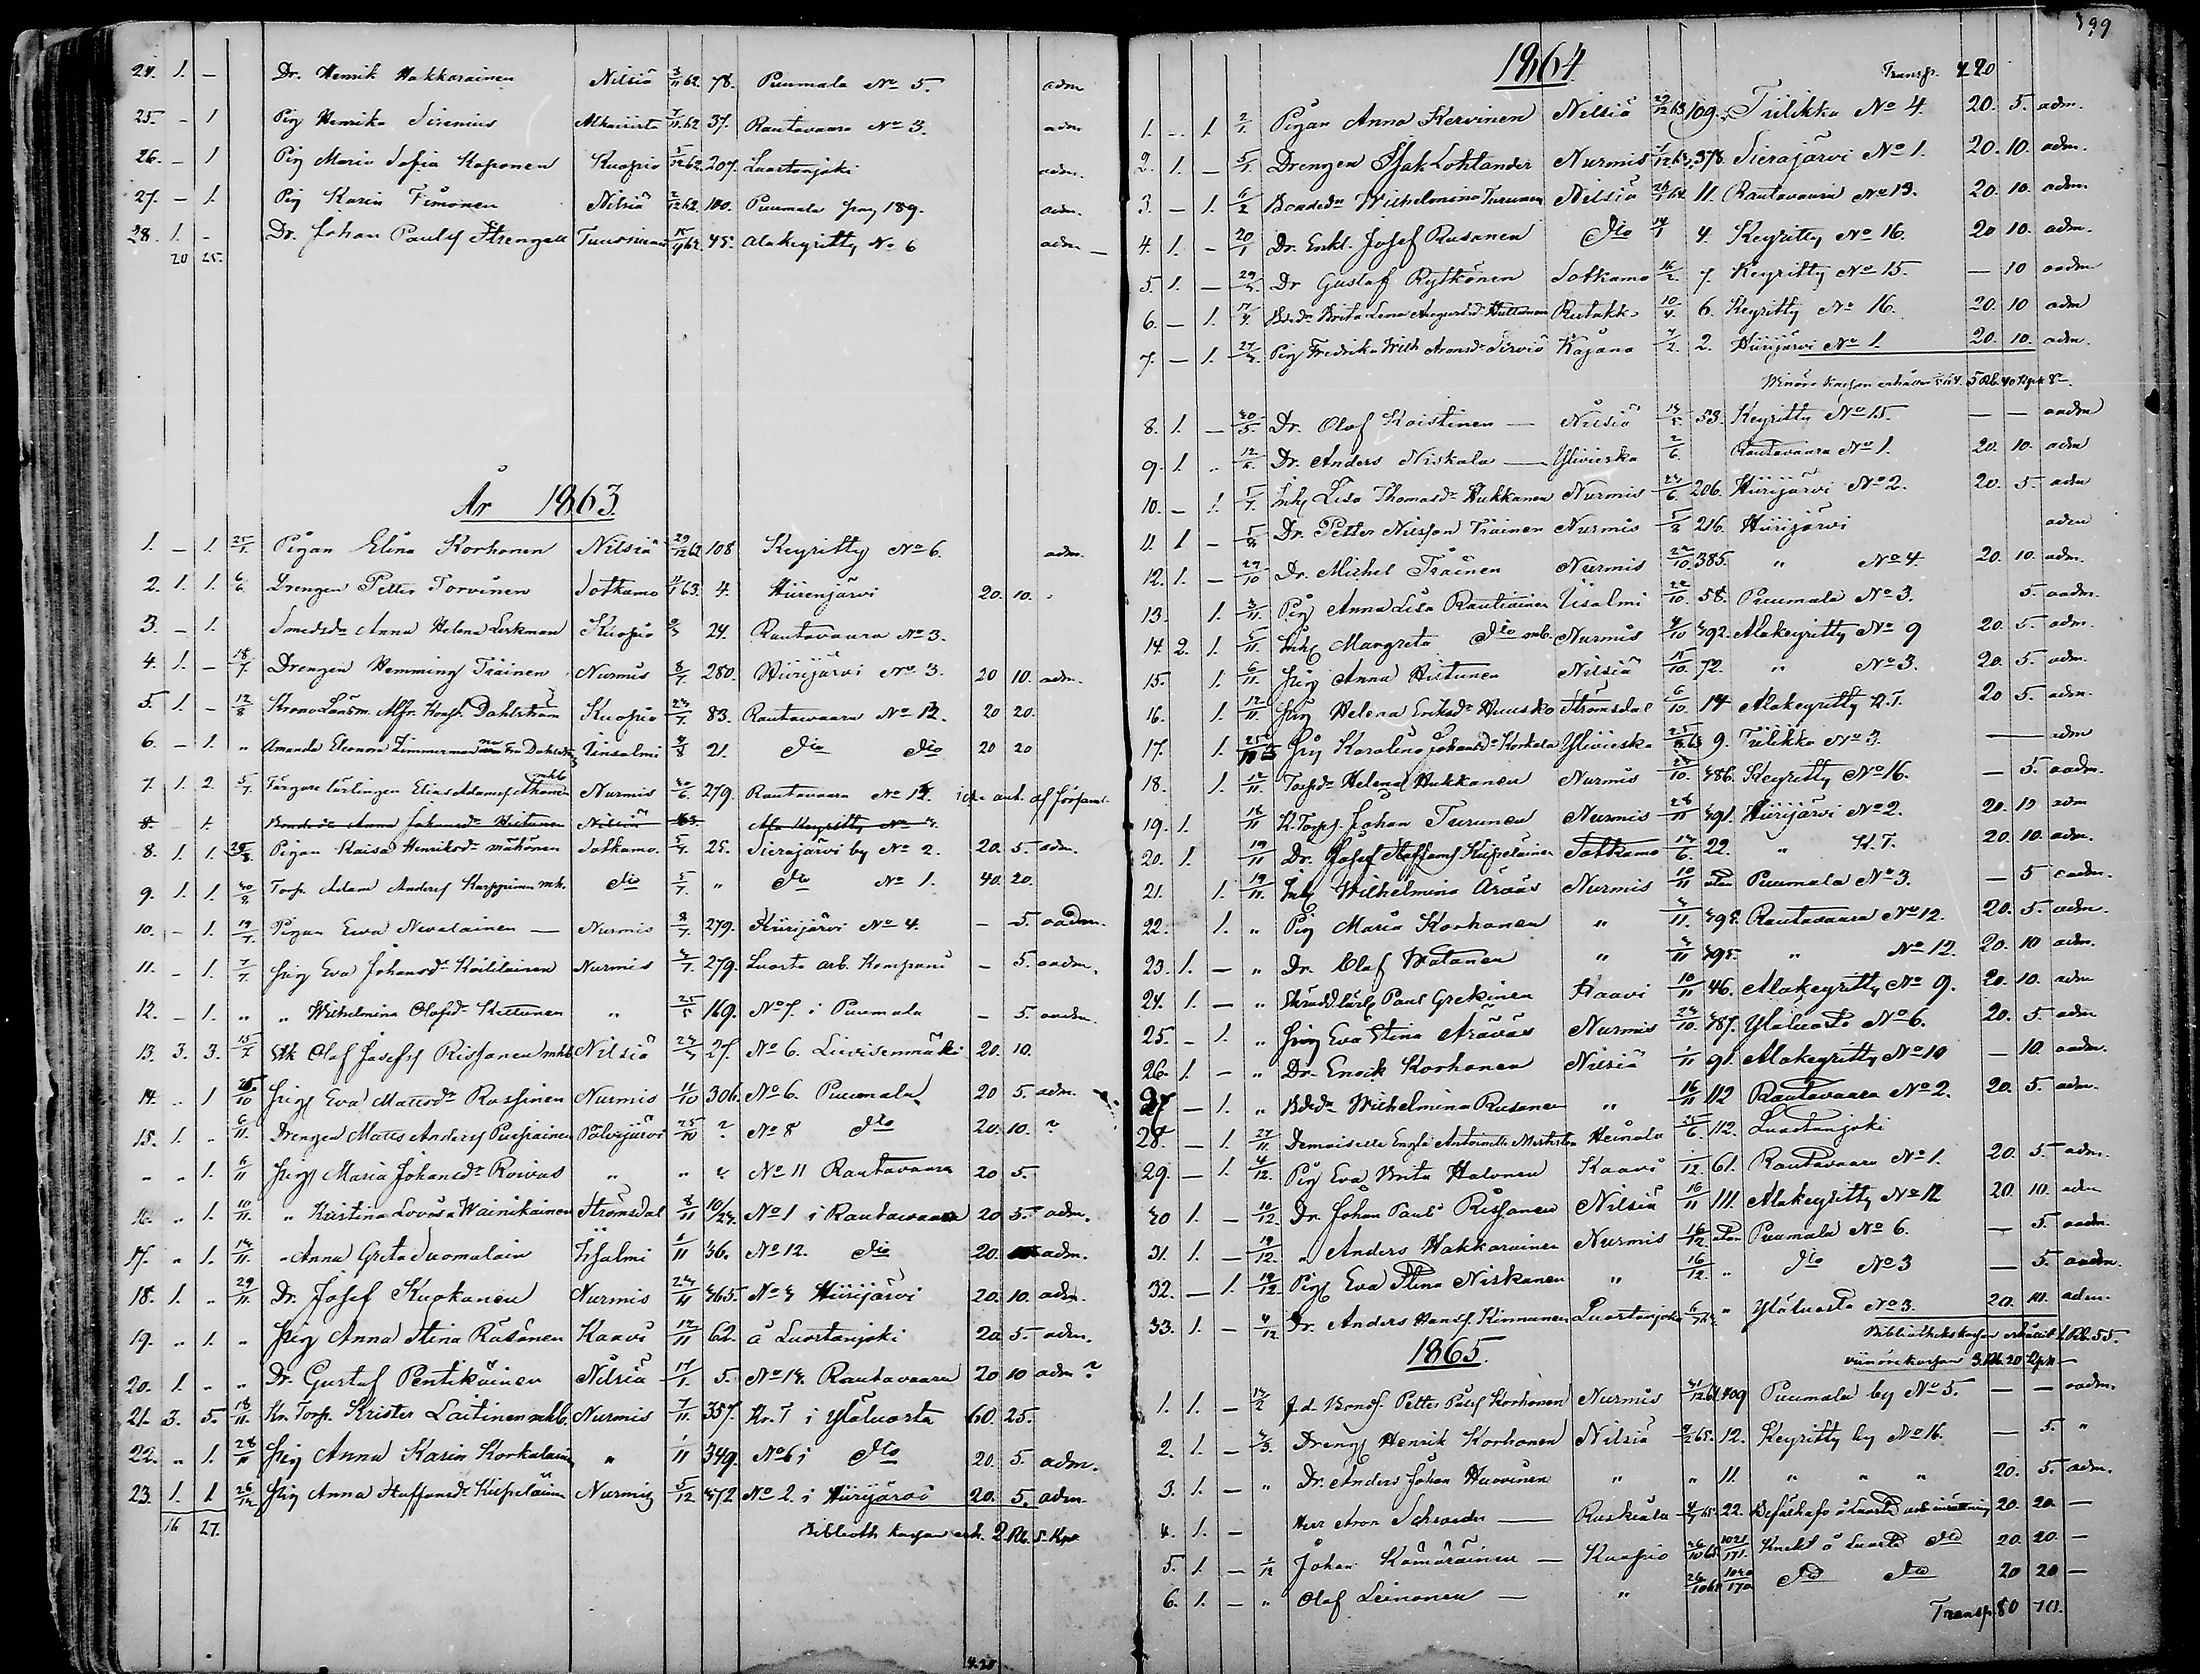 24. 1. — Dr. Henrik Hakkarainen Nilsiä 3/11 62. 78. Puumala No 5. adm
25. — 1 Pig Henrika Sirenius 7/11 62 37. Rautavaara No 3. adm
26. — 1 Pig Maria Sofia Koponen Kuopio 1/12 62. 207. Luostanjoki adm.
27. — 1. Pig Karin Timonen Nilsiä 2/12 62. 100. Puumala pag 189. adm.
28. 1. - Dr. Johan Paulsf Strengell 45. Alakeyritty No 6 adm —
20 25.
År 1863.
1. — 1. 25/1. Pigan Elina Korhonen Nilsiä 29/12 62 108 Keyritty No 6. adm.
2. 1. 1. 6/6. Drengen Petter Torvinen Sotkamo 11/1 63. 4. Hiirenjärvi 20. 10.
3. — 1. Smedsdr Anna Helena Leskman Kuopio 24. Rautavaara No 3.
4. 1. — 18/7. Drengen Hemming Tiainen Nurmis 8/7. 280. Hiirijärvi No 3. 20 10. adm.
5. 1. — 12/8 Krono Länsm. Alfr. Konst. Dahlström Kuopio 23/7. 83. Rautavaara No 12. 20 20.
6. — 1. " Amanda Eleonora Zimmerman 4/8 21. dto dto 20 20
7. 1. 2. 5/7. Färgare lärlingen Elias Adamsf mhb Nurmis 30/6. 279. Rautavaara No 12. icke ant. af förfaml.
8. - 1. Bondedr Anna Johansdr Nilsiä Ala Keyritty No
8. 1. 1. Pigan Kaisa Henriksdr Mähönen Sotkamo. 5/7. 25. Sierajärvi by No 2. 20. 5. adm.
9. 1. 1. 30/8 Torp. Adam Andersf Karppinen mh. dto 5/7. " dto No 1. 40. 20.
10. - 1. 19/7. Pigan Ewa Nevalainen — Nurmis 2/7. 279. Hiirijärvi No 4. - 5. aadm.
11. — 1. 7/7. Pig Eva Johansdr Nurmis 3/7. 279. Luosta arb. Kompani — 5. aadm.
12. — 1. " " Wilhelmina Olofsdr Kettunen " 25/5 169. No 7. i Puumala — 5. aadm.
13. 3. 3. 15/7 Olof Josefsf Rissanen mhb Nilsiä 27. No 6. Liivisenmäki 20. 10.
14. " 1 Pig Eva Mattsdr Rossinen Nurmis 11/10 306. No 6. Puumala 20 5. adm.
15. 1. " 6/11. Drengen Matts Andersf Pussiainen Pälvejärvi 25/10 ? No 8 dto 20. 10. ?
" " 1. 6/11 Pig Maria Johansdr Roivas " " ? No 11 Rautavaara 20 5.
16. " 1. 10/11. " Kristina Lovisa Wainikainen Strömsdal 8/11 10/23. No 1 i Rautavaara 20 5. adm.
17. " 1. 14/11. " Anna Greta Suomalain Iisalmi 1/11 36. No 12. dto 20. adm.
18. 1. " 29/11. Dr. Josef Kuokanen Nurmis 365. No 3 Hiirijärvi 20. 10. adm.
19. " 1. " Pig Anna Stina Räsänen Kaavi 12/11 62. å Luostanjoki 20 5. adm.
20. 1. " " Dr. Gustaf Pentikäinen Nilsiä 17/1. 5. No 14. Rautavaara 20 10 adm ?
21. 3. 5. 18/11. Kr. Torp. Krister Laitinen mhb. Nurmis 7/11. 357. Kr. T i Yläluosta 60. 25.
22. " 1. 28/11 Pig Anna Karin Korkalain " 1/11 349. No 6 i dto 20. 5. adm.
23. 1. 1 26/12 Pig Anna Staffansdr Kiiskeläinen Nurmis 5/12 372 No 2. i Hiirijärvi 20. 5. adm.
16 27. Biblioth kassan erh. 2 Rb. 5 Kpk
4.20
399
1864. Transp. 4 20
1. - 1 2/1. Pigan Anna Kervinen Nilsiä 29/12 63 109. Tiilikka No 4. 20. 5. adm.
2. 1. — 5/1. Drengen Isak Lohlander Nurmis 1/12 63. 378. Sierajärvi No 1. 20. 10. adm.
3. — 1. 6/2 Bondedr Wilhelmina Turunen Nilsiä 11. Rautavaara No 13. 20. 10. adm.
4. 1. — 20/1 Dr. Enkl. Josef Rusanen dto 14/1 4. Keyritty No 16. 20 10. adm.
5. 1. — Dr Gustaf Rytkönen Sotkamo 16/2. 7. Keyritty No 15. — 10 aadm
6. — 1. Bdedr Brita Lena Augustsdr Huttunen Rutakk. 10/4. 6. Keyritty No 16. 20. 10 adm
7. — 1. Pig Fredrika Wilh Aronsdr Serviö Kajana 2. Hiirijärvi No 1. 20. 10. adm.
kassan erhåller 5 Rb. 40 Kpk Sr.
8. 1. — 20/5. Dr. Olof Koistinen — Nilsiä 53. Keyritty No 15. — — aadm
9. 1. " 12/6. Dr. Anders Niskala — Ylivieska 2/6. Rautavaara No 1. 20. 10. adm
10. — 1. 5/7. Inh. Lisa Thomasdr Hukkanen Nurmis 206. Hiirijärvi No 2. 20. 5. adm
11 1 — 5/8 Dr. Petter Nilsson Tiainen Nurmis 5/8 216. Hiirijärvi adm
12. 1. — 29/10 Dr. Michel Tiainen Nurmis 385. " No 4 20. 10. adm.
13. 1. 3/11 Pig Anna Lisa Rautiainen Iisalmi 22/10. 58. Puumala No 3. 5. aadm.
14. 2. 1. 5/11. Inh. Margreta dto mb. Nurmis 392. Alakeyritty No 9 20. 5. adm.
15. 1. 6/11. Pig Anna Heitunen Nilsiä 15/10. 72. " No 3. 20. 5. adm.
16. 1. 12/11. Pig Helena Eriksdr Huusko Strömsdal 6/10. 14 Alakeyritty 20 5. adm.
17. 1. Pig Karolina Johansdr Korkala Ylivieska 9. Tiilikka No 3. — adm
18. 1. 12/11. Torpdr Helena Hukkanen Nurmis 386. Keyritty No 16. — 5. aadm.
19. 1. 18/11 K. Torp. Johan Turunen Nurmis 391. Hiirijärvi No 2. 20. 10 adm
20. 1. 19/11 Dr. Josef Staffansf Kiiskeläinen Sotkamo 22. " 20. 10. adm.
21. 1. 19/11. Inh. Wilhelmina Äräväs Nurmis 10/11 utan Puumala No 3. — 5 aadm.
22. 1. " Pig Maria Korhonen " 3/11. 395. Rautavaara No 12. 20. 5. adm.
23. 1. — " Dr. Olof Watanen " 3/11 395. " No 12. 20. 10 adm.
24. 1. — " Skrädd lärl. Paul Grekinen Kaavi 10/11 46. Alakeyritty No 9. 20. 10. adm
25. — 1. " Pig Eva Stina Äräväs Nurmis 387. Ylaluosta No 6. 20. 5 adm
26. 1. — " Dr. Enock Korhonen Nilsiä 1/11 91. Alakeyritty No 10 — 10. aadm.
27 — 1. " Bdedr Wilhelmina Rusanen " 16/11 112 Rautavaara No 2. 20. 5. adm.
28. — 1. 27/11. Demoiselle Engla Antoinette Heinola 112. Luostanjoki
29. — 1. 4/12. Pig Eva Brita Halonen Kaavi 61. Rautavaara No 1. 20. 5. adm.
30 1. — 10/12. Dr. Johan Paul Rissanen Nilsiä 16/11 111. Alakeyritty No 12 20. 10. adm
31. 1. — 19/12. " Anders Hakkarainen Nurmis 16/12 utan Puumala No 6. — 5. aadm.
32. — 1. 19/12. Pig Eva Stina Niskanen " 16/12. " dto No 3 — 5. aadm.
33. 1. — Dr. Anders Hansf Kinnunen Luostanjoki " Ylaluosta No 3. 20. 10. adm.
Bibliothekskassan erhållit 1 Rb. 55.
1865. kassan 3. Rb. 20 Kpk —
1. 1. — f.d. Bonds. Petter Pålsf Korhonen Nurmis 31/12 64 409 Puumala by No 5. — — aadm.
2. 1. — Dreng Henrik Korhonen Nilsiä 12. Keyritty by No 16. — 5. "
3. 1. — " Dr. Anders Johan Huovinen " " 11. " " " 20. 5. adm.
4. 1. — Herr Aron Schroeder — Ruskeala 22. Befälhafv. å Luosta arb. inrättning 20. 20. —
5. 1. — Johan Kämäräinen — Kuopio 1021/171. Knekt å Luosta dto 20. 20. —
6. 1. — " Olof Leinonen — " 1020/170 dto dto 20 20 —
Transp. 80 70.